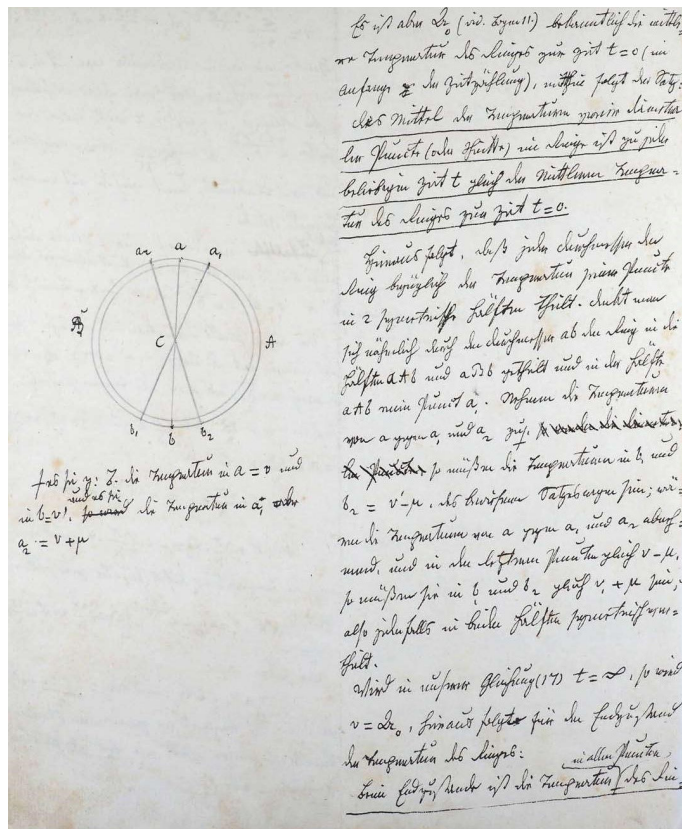 a₂ a a₁
B C A
b₁ b b₂
Es sei z. B. die Temperatur in a = v und
in b = v', und es sei die Temperatur in a₁ oder
a₂ = v + μ
Es ist aber (vid. ) bekanntlich die mittle-
re Temperatur des Ringes zur Zeit t = 0 (im
Anfange der Zeitzählung), mithin folgt der Satz:
das Mittel der Temperaturen zweier diametra-
ler Puncte (oder Schnitte) im Ringe ist zu jeder
beliebigen Zeit t gleich der mittleren Tempera-
tur des Ringes zur Zeit t = 0.
Hieraus folgt, daß jeder Durchmesser den
Ring bezüglich der Temperatur seiner Puncte
in 2 symetrische Hälften theilt. Denkt man
sich nähmlich durch den Durchmesser ab den Ring in die
Hälften aAb und aBb getheilt und in der Hälfte
aAb einen Punct a. Nehmen die Temperaturen
von a gegen a₁ und a₂ zu, so müßen die Temperaturen in b₁ und
b₂ = v' - μ, des bewiesenen Satzes wegen sein; wä-
ren die Temperaturen von a gegen a₁ und a₂ abneh-
mend, und in den letztern Puncten gleich v - μ,
so müßen sie in b₁ und b₂ gleich v, + μ sein,
also jedenfalls in beiden Hälften symetrisch ver-
theilt.
Wird in unserer Gleichung (17) t = ∞, so wird
v = , hieraus folgt für den Endzustand
der Temperatur des Ringes:
in allen Puncten
Beim Endzustande ist die Temperatur des Rin-